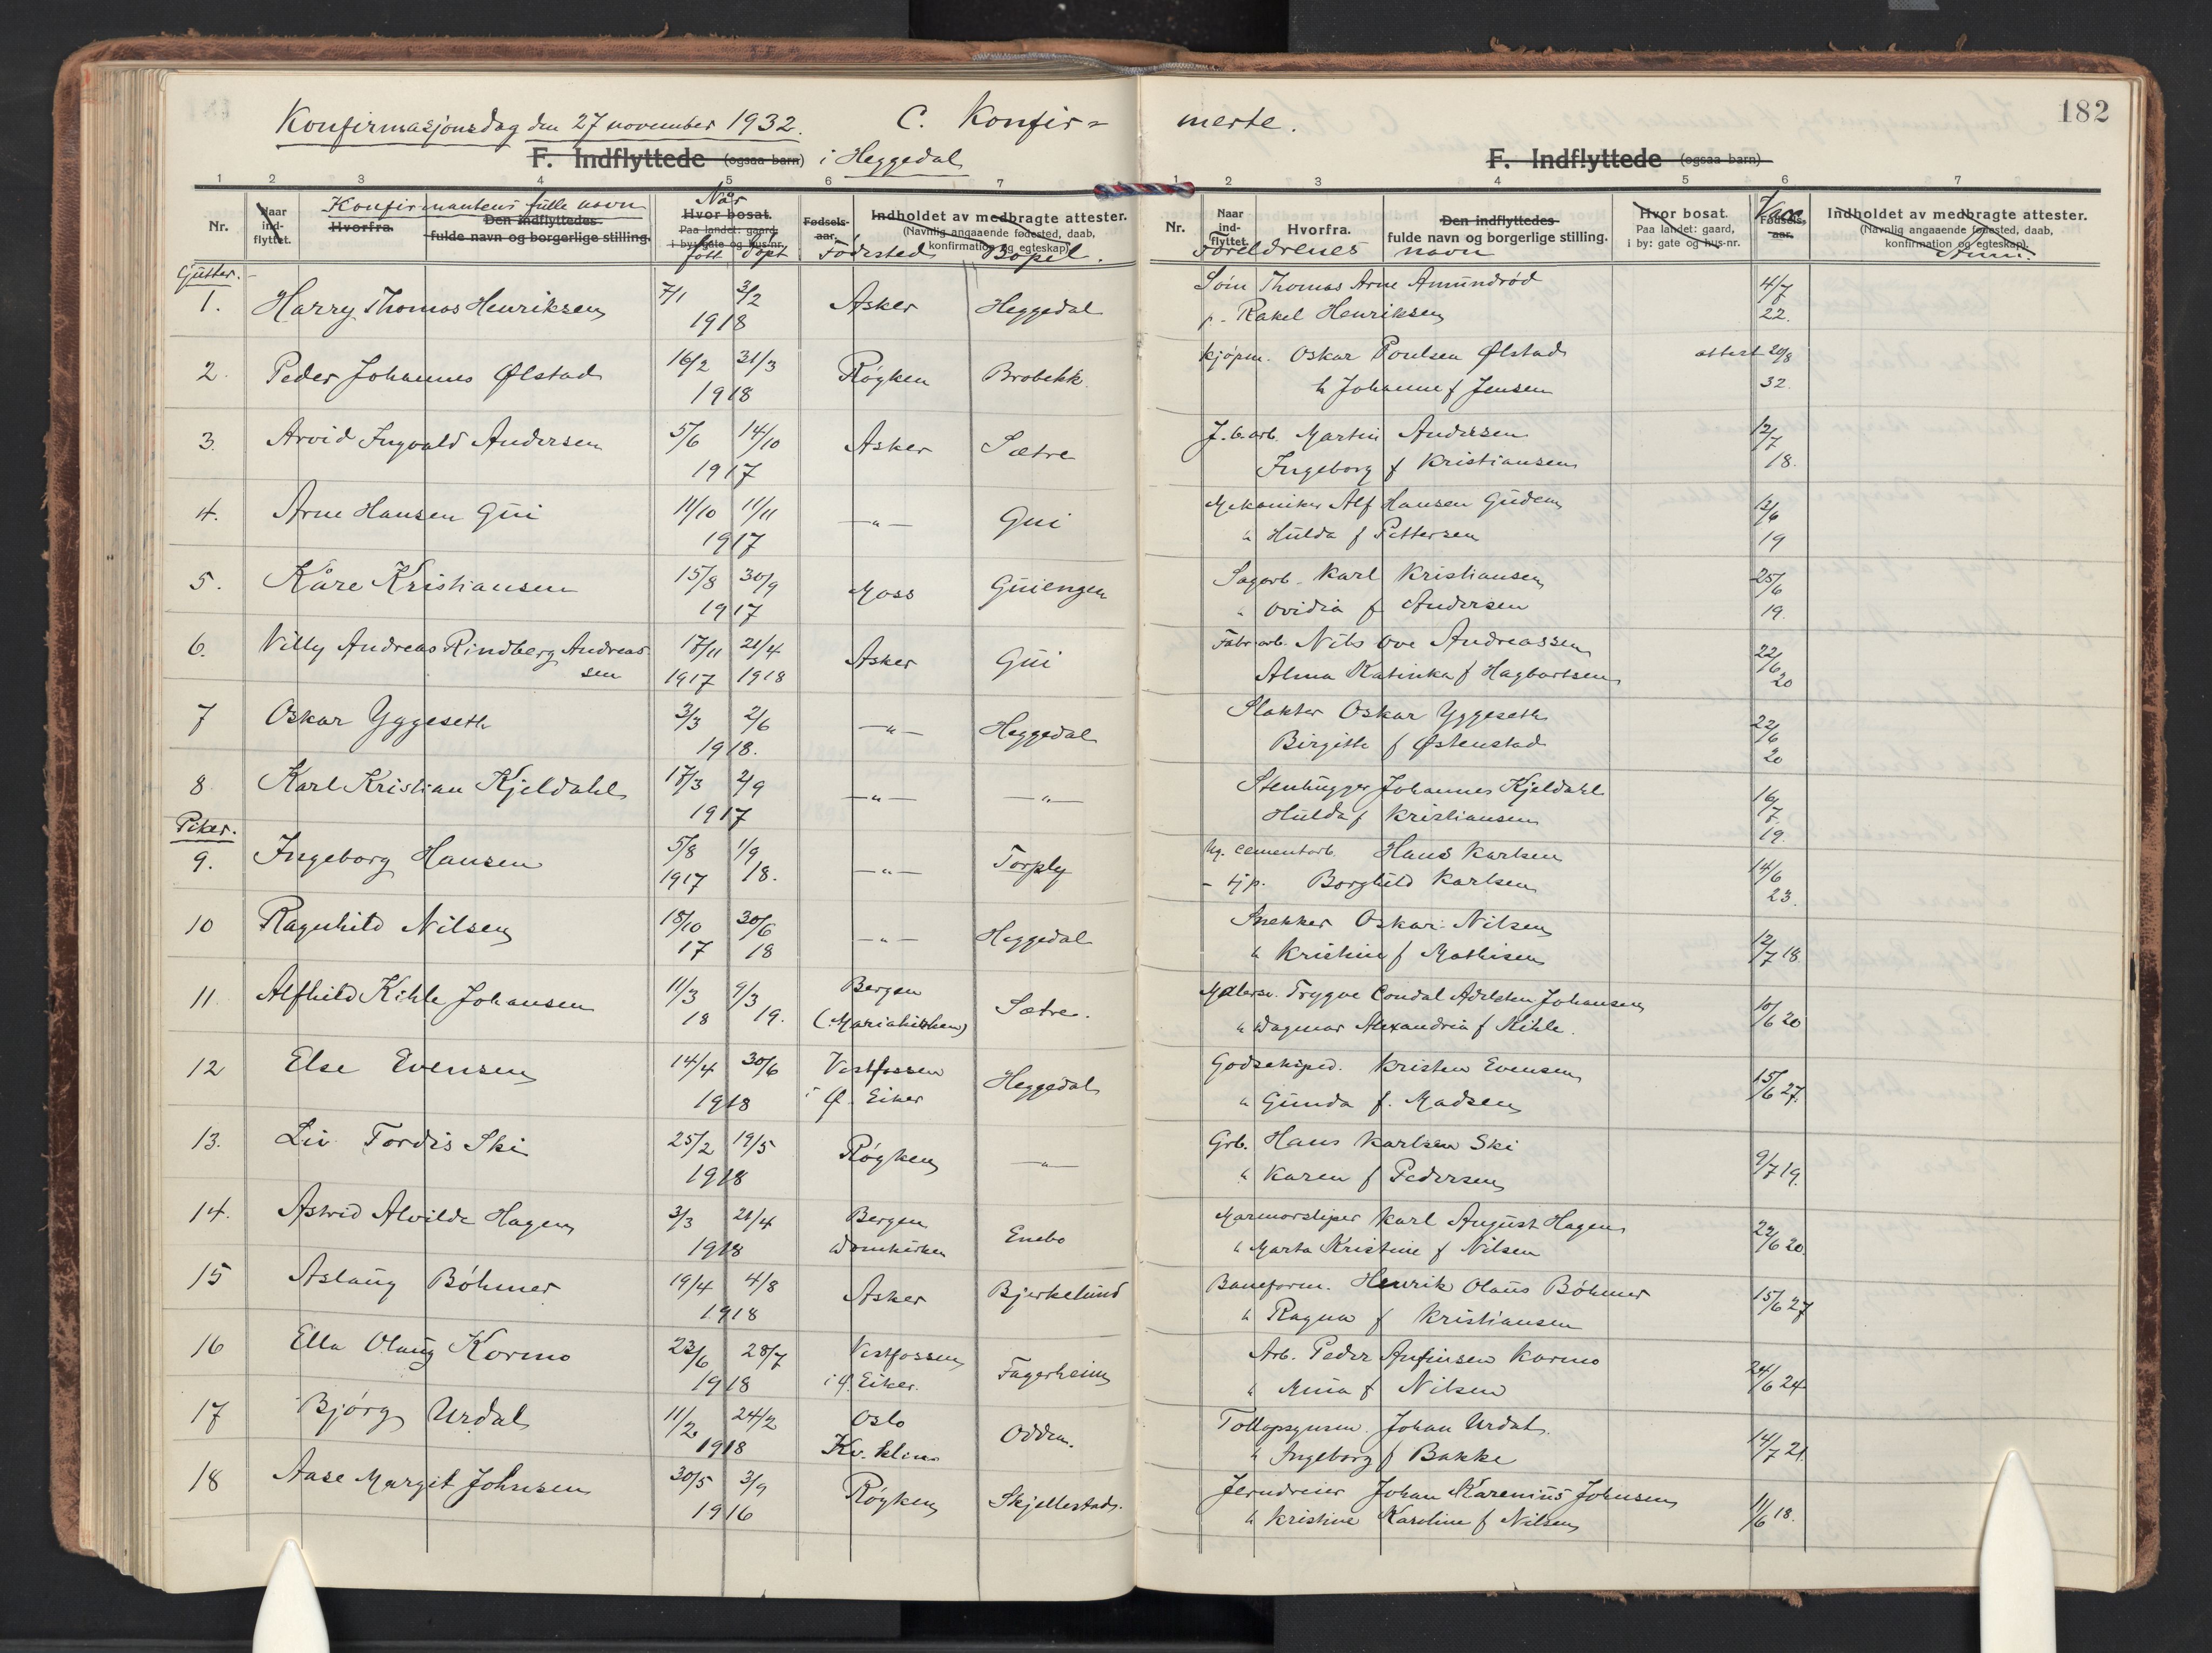 182
Konfirmasjonsdag den 27 november 1932. C. Konfir= merte.
F. Indflyttede (ogsaa barn) i Heggedal
F. Indflyttede (ogsaa barn)
1 2 3 4 5 6 7
1 2 3 4 5 6 7
Nr.
Naar ind- flyttet.
Konfirmantens fulle navn
Hvorfra.
Den indflyttedes fulde navn og borgerlige stilling.
Når
Hvor bosat.
Paa landet: gaard, i by: gate og hus-nr.
født døpt
Fødsels- aar.
Fødested
Indholdet av medbragte attester.
(Navnlig angaaende fødested, daab, konfirmation og egteskap).
Bopel.
Nr.
Naar ind- flyttet.
Hvorfra.
Den indflyttedes fulde navn og borgerlige stilling.
Foreldrenes navn
Hvor bosat.
Paa landet: gaard, i by: gate og hus-nr.
Vacc
Fødsels- aar.
Indholdet av medbragte attester.
(Navnlig angaaende fødested, daab, konfirmation og egteskap).
Gutter.
1. Harry Thomas Henriksen 7/1 3/2 1918 Asker Heggedal
Thomas Arne Amundrød 4/7
Rakel Henriksen 22.
2. Peder Johannes Ølstad 16/2 31/3 1918 Røyken Brobekk.
Kjøpm. Oskar Poulsen Ølstad attest 20/8
h Johanne f Jensen 32.
3. Arvid Ingvald Andersen 5/6 14/10 1917 Asker Sætre
J.b.arb. Martin Andersen 12/7
Ingeborg f Kristiansen 18.
4. Arne Hansen Gui 11/10 11/11 1917 —"— Gui
Mekaniker Alf Hansen Gudem 12/6
" Hulda f Pettersen 19
5. Kåre Kristiansen 15/8 30/9 1917 Moss Guiengen
Sagarb. Karl Kristiansen 25/6
" Ovidia f Andersen 19.
6. Villy Andreas Rindberg Andreas-
sen 17/11 1917 21/4 1918 Asker Gui
Fabr.arb. Nils Ove Andreassen 22/6
Alma Katinka f Hagbartsen 20
7 Oskar Yggeseth 3/3 2/6 1918. —"— Heggedal
Slakter Oskar Yggeseth 22/6
Birgitte f Østenstad 20
8. Karl Kristian Kjeldahl 17/3 2/9 1917 —"— —"—
Stenhugger Johannes Kjeldahl 16/7
Hulda f Kristiansen 19.
Piker.
9. Ingeborg Hansen 5/8 1917 1/9 18. —"— Torply
Ug. cementarb. Hans Karlsen 14/6
- tjp. Borghild Karlsen 23.
10 Ragnhild Nilsen 18/10 17 30/6 18 —"— Heggedal
Snekker Oskar Nilsen
" Kristine f Mathisen 12/7 18
11. Alfhild Kihle Johansen 11/3 18 9/3 19. Bergen (Mariakirken) Sætre.
Malersv. Trygve Condal Adelsten Johansen
" Dagmar Alexandria f Kihle. 10/6 20
12 Else Evensen 14/4 30/6 1918 Vestfossen i Ø. Eiker Heggedal
Godseksped. Kristen Evensen
" Gunda f. Madsen 15/6 27.
13. Liv Tordis Ski 25/2 19/5 1918 Røyken —"—
Grb. Hans Karlsen Ski
" Karen f Pedersen 9/7 19.
14. Astrid Alvilde Hagen 3/3 21/4 1918 Bergen Domkirken Enebo
Marmorsliper Karl August Hagen
" Marta Kristine f Nilsen 22/6 20.
15 Aslaug Böhmer 19/4 4/8 1918 Asker Bjerkelund
Baneform. Henrik Olaus Böhmer
" Ragna f Kristiansen 15/6 27
16 Ella Olaug Kormo 23/6 28/7 1918 Vestfossen i Ø. Eiker. Fagerheim
Arb. Peder Anfinsen Kormo
" Anna f Nilsen 24/6 24
17 Bjørg Urdal 11/2 24/2 1918 Oslo Kv. klin. Odden.
Tollopsynsm. Johan Urdal.
" Ingeborg f Bakke 14/7 21.
18 Aase Margit Johnsen 30/5 3/9 1916 Røyken Skjellestad.
Jerndreier Johan Marenius Johnsen
" Kristine Karoline f Nilsen 11/6 18.